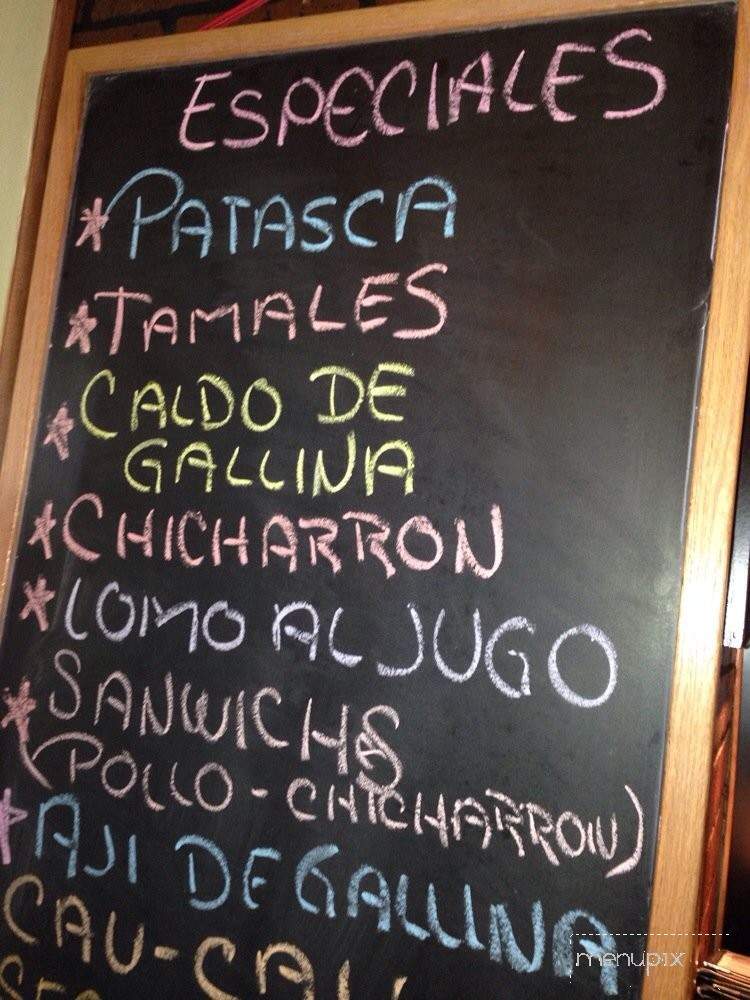 ESPECIALES
* PATASCA
* TAMALES
* CALDO DE
GALLINA
* CHICHARRON
* LOMO AL JUGO
* SANWICHS
(POLLO - CHICHARRON)
* AJI DE GALLINA
CAU-CAU
menupix